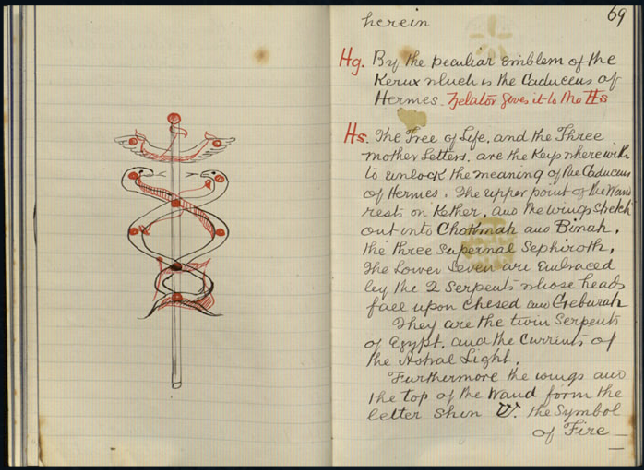 69
herein
Hg. By the peculiar emblem of the
Kerux which is the Caduceus of
Hermes. Zelator gives it to the
Hs. The Tree of Life, and the Three
mother letters, are the Keys wherewith
to unlock the meaning of the Caduceus
of Hermes. The upper point of the Wand
rests on Kether, and the wings stretch
out into Chokmah and Binah,
the three Supernal Sephiroth.
The Lower Seven are Embraced
by the 2 Serpents whose heads
fall upon Chesed and Geburah
They are the twin Serpents
of Egypt. and the Currents of
the Astral Light.
Furthermore the wings and
the top of the Wand form the
letter Shin ש. the Symbol
of Fire